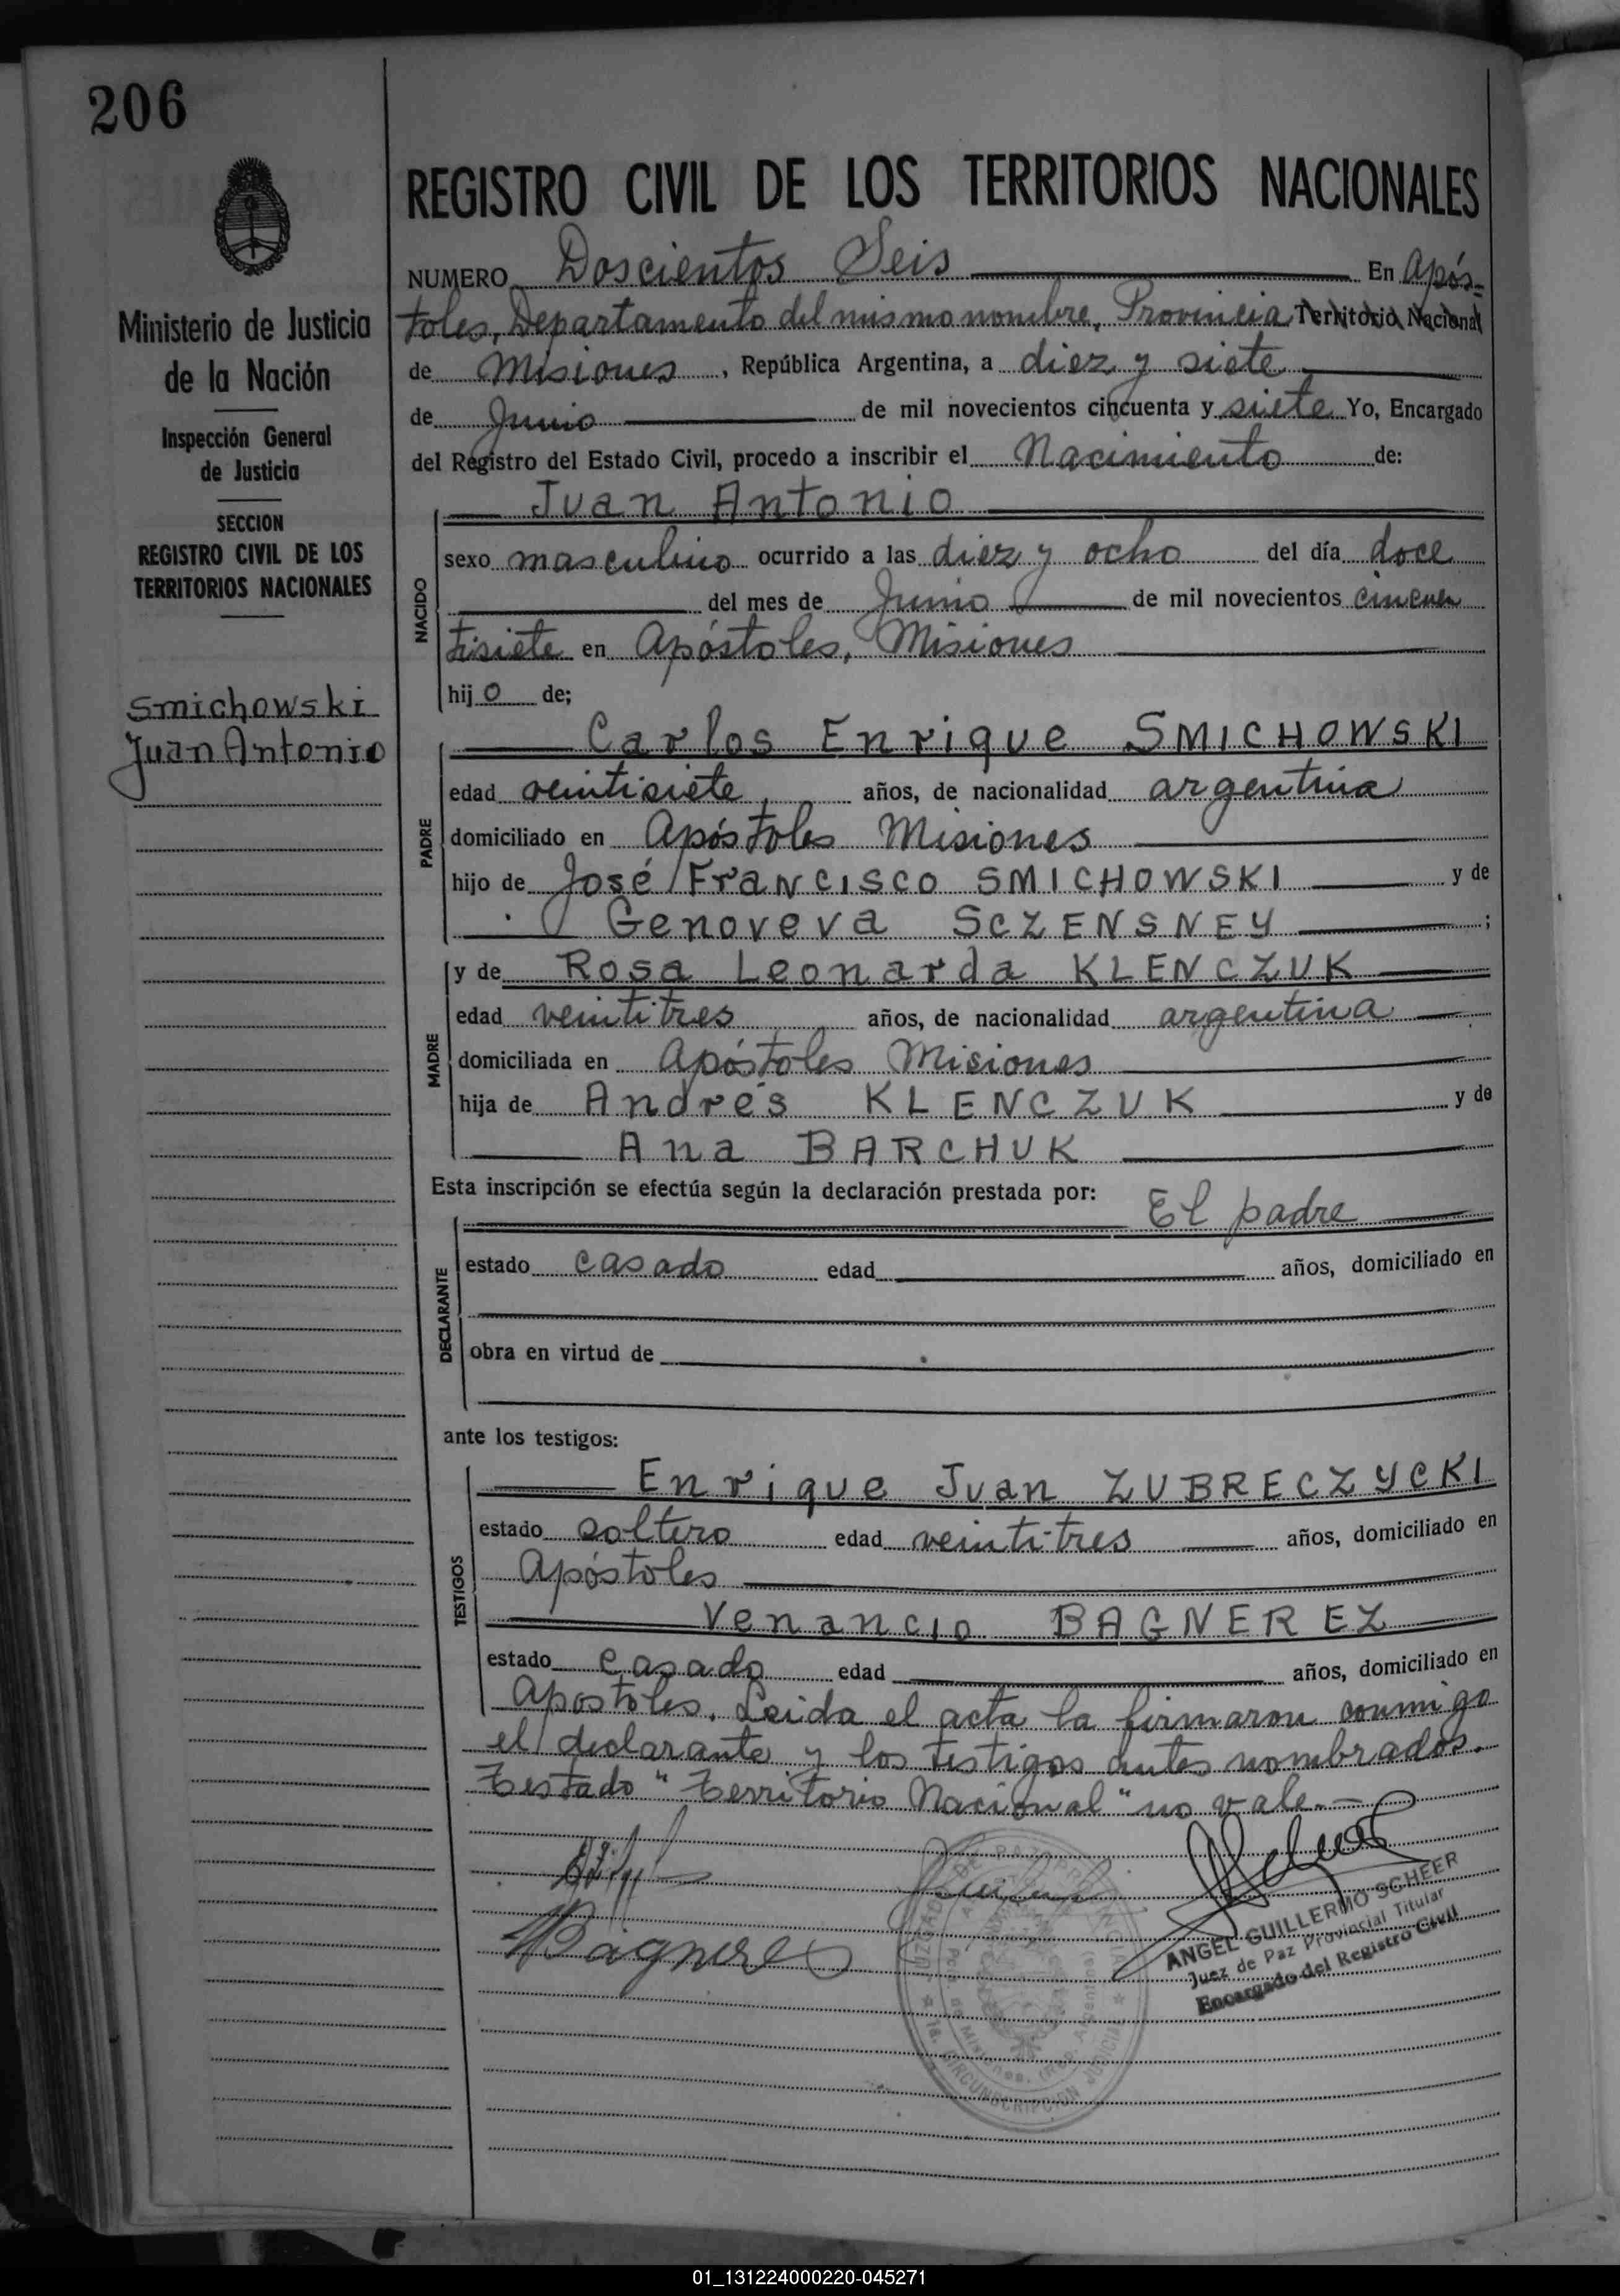 206
Ministerio de Justicia
de la Nación
Inspección General
de Justicia
SECCION
REGISTRO CIVIL DE LOS
TERRITORIOS NACIONALES
Smichowski
Juan Antonio
REGISTRO CIVIL DE LOS TERRITORIOS NACIONALES
NUMERO Doscientos Seis En Após=
toles, Departamento del mismo nombre, Provincia Territorio Nacional
de Misiones, República Argentina, a diez y siete
de Junio de mil novecientos cincuenta y siete Yo, Encargado
del Registro del Estado Civil, procedo a inscribir el Nacimiento de:
NACIDO
Juan Antonio
sexo masculino ocurrido a las diez y ocho del día doce
del mes de Junio de mil novecientos cincuen
tisiete en Apóstoles, Misiones
hijo de;
PADRE
Carlos Enrique SMICHOWSKI
edad veintisiete, años, de nacionalidad argentina
domiciliado en Apóstoles Misiones
hijo de José Francisco SMICHOWSKI y de
Genoveva SCZENSNEY ;
MADRE
y de Rosa Leonarda KLENCZUK
edad veintitres años, de nacionalidad argentina
domiciliada en Apóstoles Misiones
hija de Andrés KLENCZUK y de
Ana BARCHUK
Esta inscripción se efectúa según la declaración prestada por:
El padre
DECLARANTE
estado casado edad años, domiciliado en
obra en virtud de
ante los testigos:
TESTIGOS
Enrique Juan ZUBRECZYCKI
estado soltero edad veintitres años, domiciliado en
Apóstoles
Venancio BAGNEREZ
estado casado edad años, domiciliado en
Apostoles. Leida el acta la firmaron conmigo
el declarante y los testigos antes nombrados.
Testado "Territorio Nacional" no vale.-
VBagneres
ANGEL GUILLERMO SCHEER
Juez de Paz Provincial Titular
Encargado del Registro Civil
CIRCUNSCRIPCION JUDICIAL
01_131224000220-045271